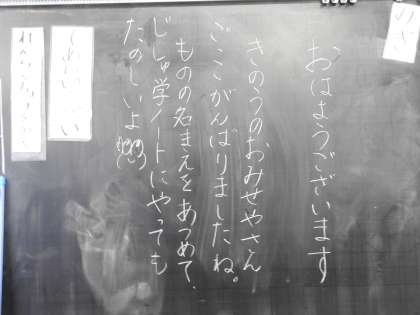 おはようございます
きのうのおみせやさん
ごごがんばりましたね。
ものの名まえをあつめて、
じしゅ学ノートにやっても
たのしいよ